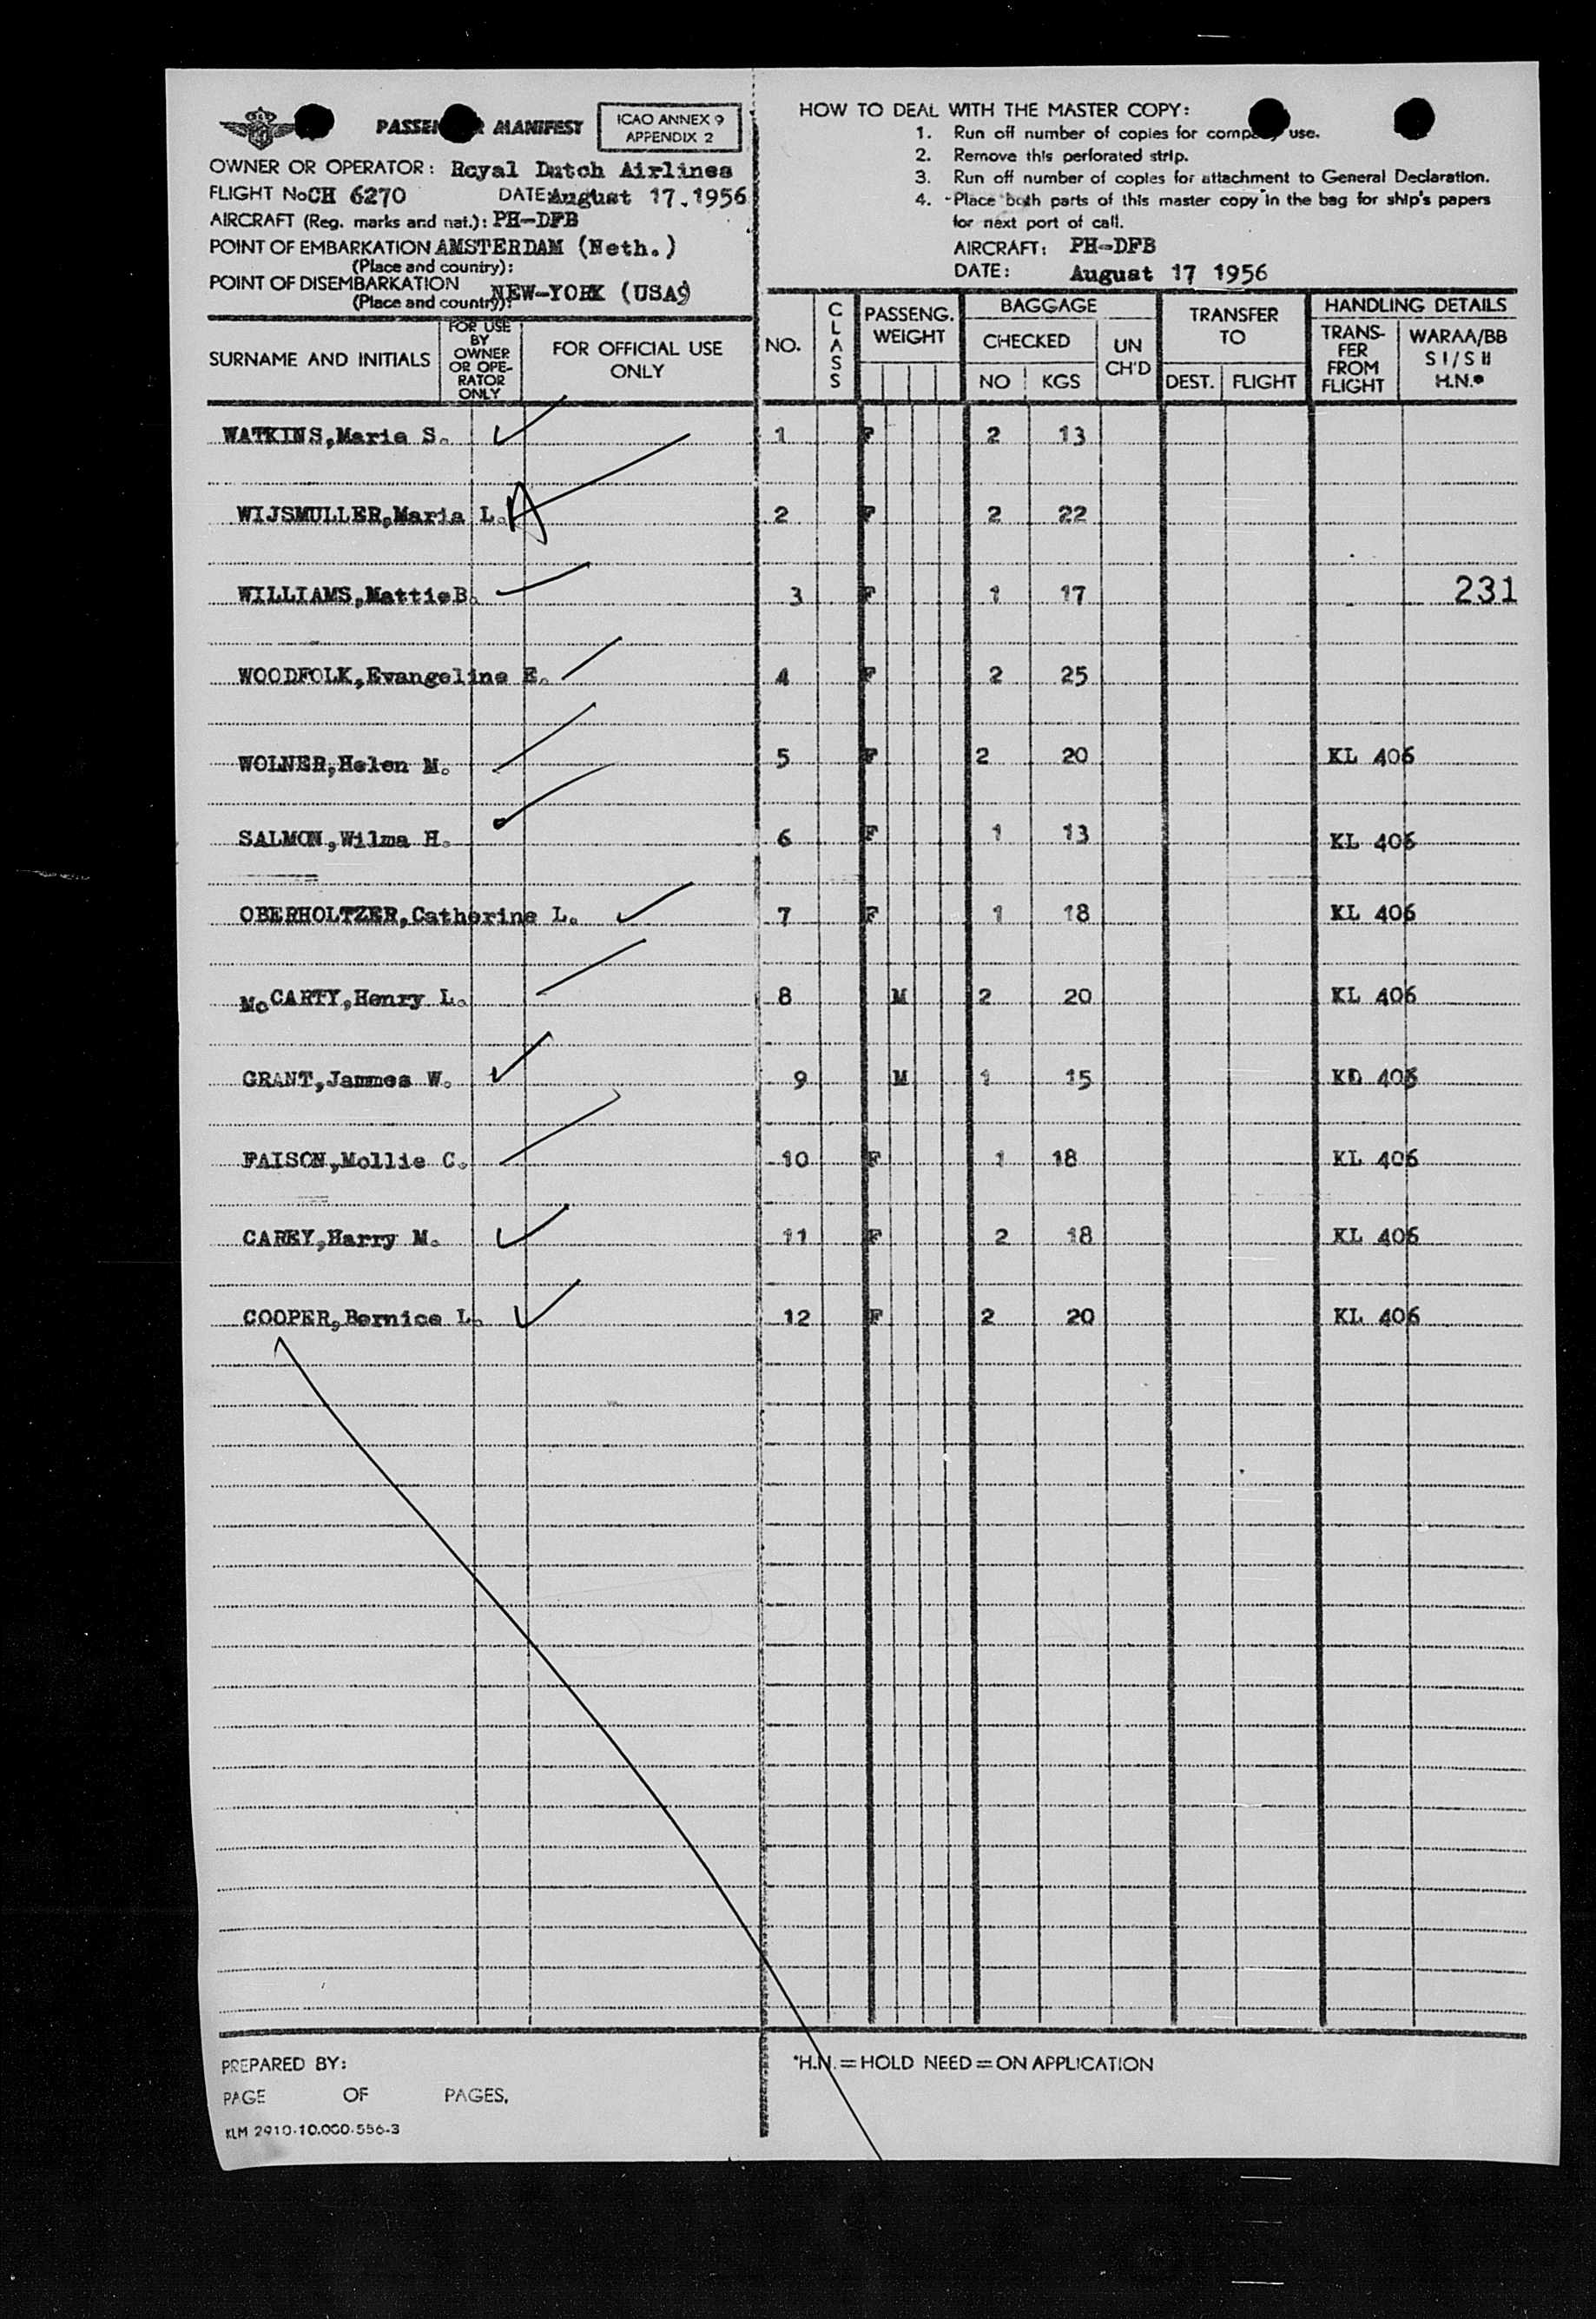 PASSENGER MANIFEST
ICAO ANNEX 9
APPENDIX 2
OWNER OR OPERATOR: Royal Dutch Airlines
FLIGHT No CH 6270 DATE: August 17.1956
AIRCRAFT (Reg. marks and nat.): PH-DFB
POINT OF EMBARKATION AMSTERDAM (Neth.)
(Place and country):
POINT OF DISEMBARKATION NEW-YORK (USA)
(Place and country):
HOW TO DEAL WITH THE MASTER COPY:
1. Run off number of copies for company use.
2. Remove this perforated strip.
3. Run off number of copies for attachment to General Declaration.
4. Place both parts of this master copy in the bag for ship's papers
for next port of call.
AIRCRAFT: PH-DFB
DATE: August 17 1956
SURNAME AND INITIALS
FOR USE
BY
OWNER
OR OPE-
RATOR
ONLY
FOR OFFICIAL USE
ONLY
NO.
CLASS
PASSENG.
WEIGHT
BAGGAGE
CHECKED
NO KGS
UN
CH'D
TRANSFER
TO
DEST. FLIGHT
HANDLING DETAILS
TRANS-
FER
FROM
FLIGHT
WARAA/BB
S I / S II
H.N.*
WATKINS,Maria S. 1 F 2 13
WIJSMULLER,Maria L. A 2 F 2 22
WILLIAMS,MattieB. 3 F 1 17 231
WOODFOLK,Evangeline E. 4 F 2 25
WOLNER,Helen M. 5 F 2 20 KL 406
SALMON,Wilma H. 6 F 1 13 KL 406
OBERHOLTZER,Catherine L. 7 F 1 18 KL 406
McCARTY,Henry L. 8 M 2 20 KL 406
GRANT,Jammes W. 9 M 1 15 KD 406
FAISON,Mollie C. 10 F 1 18 KL 406
CAREY,Harry M. 11 F 2 18 KL 406
COOPER,Bernice L. 12 F 2 20 KL 406
PREPARED BY:
PAGE OF PAGES.
KLM 2910-10.000-556-3
*H.N. = HOLD NEED = ON APPLICATION